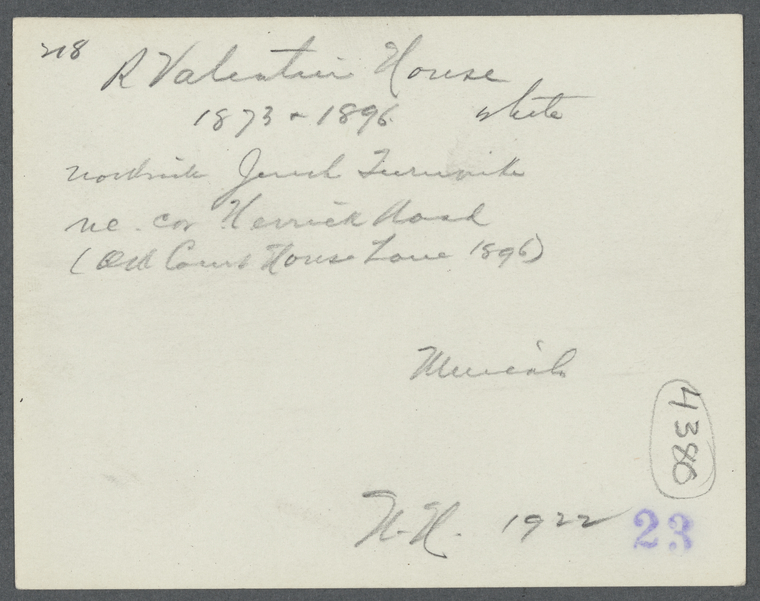 218
R Valentine House
1873 & 1896 white
northside Jerich Turnpike
ne. cor Herrick Road
(Old Court House Lane 1896)
Mineola
H.H. 1922
4386
23